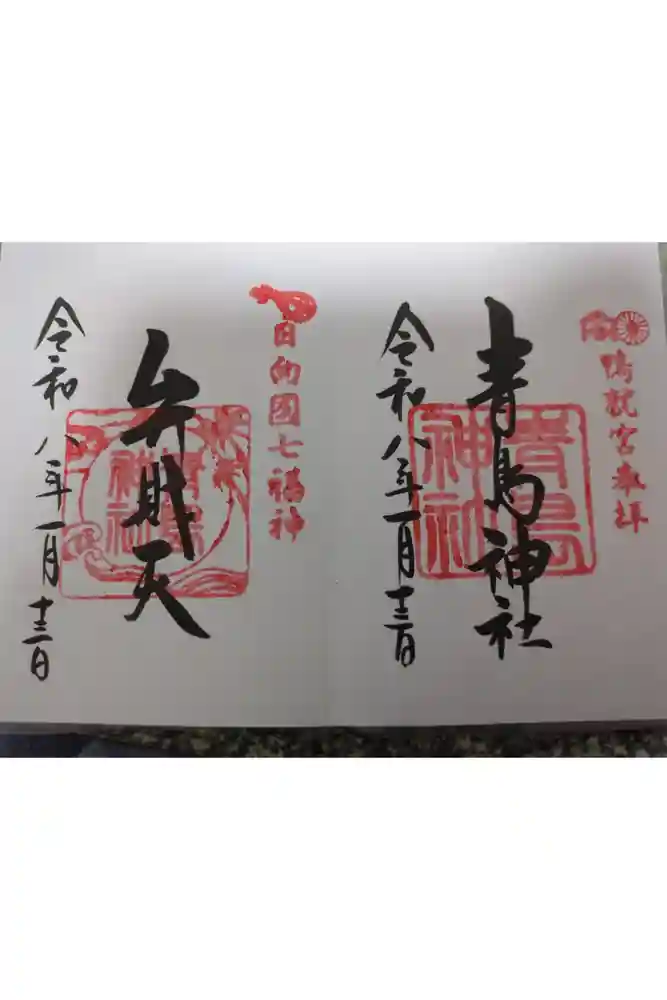 鴨就宮奉拝
青島神社
青島
神社
令和八年一月十三日
日向國七福神
弁財天
青島
神社
令和八年一月十三日